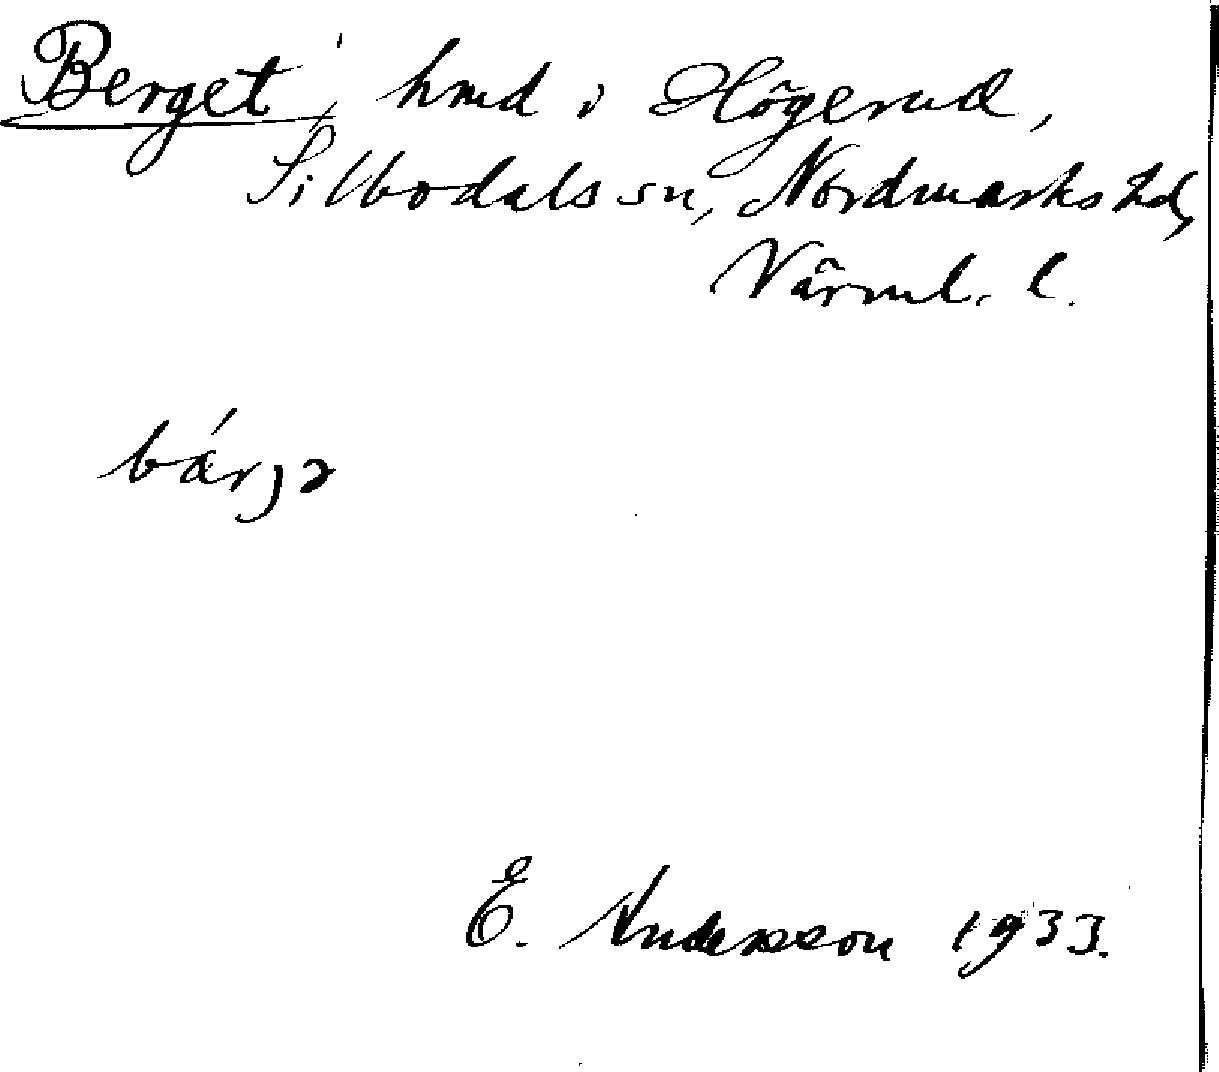 Berget, hmd i Högerud,
Silbodals sn, Nordmarks hd,
Värml. l.
bárjə
E. Andersson 1933.